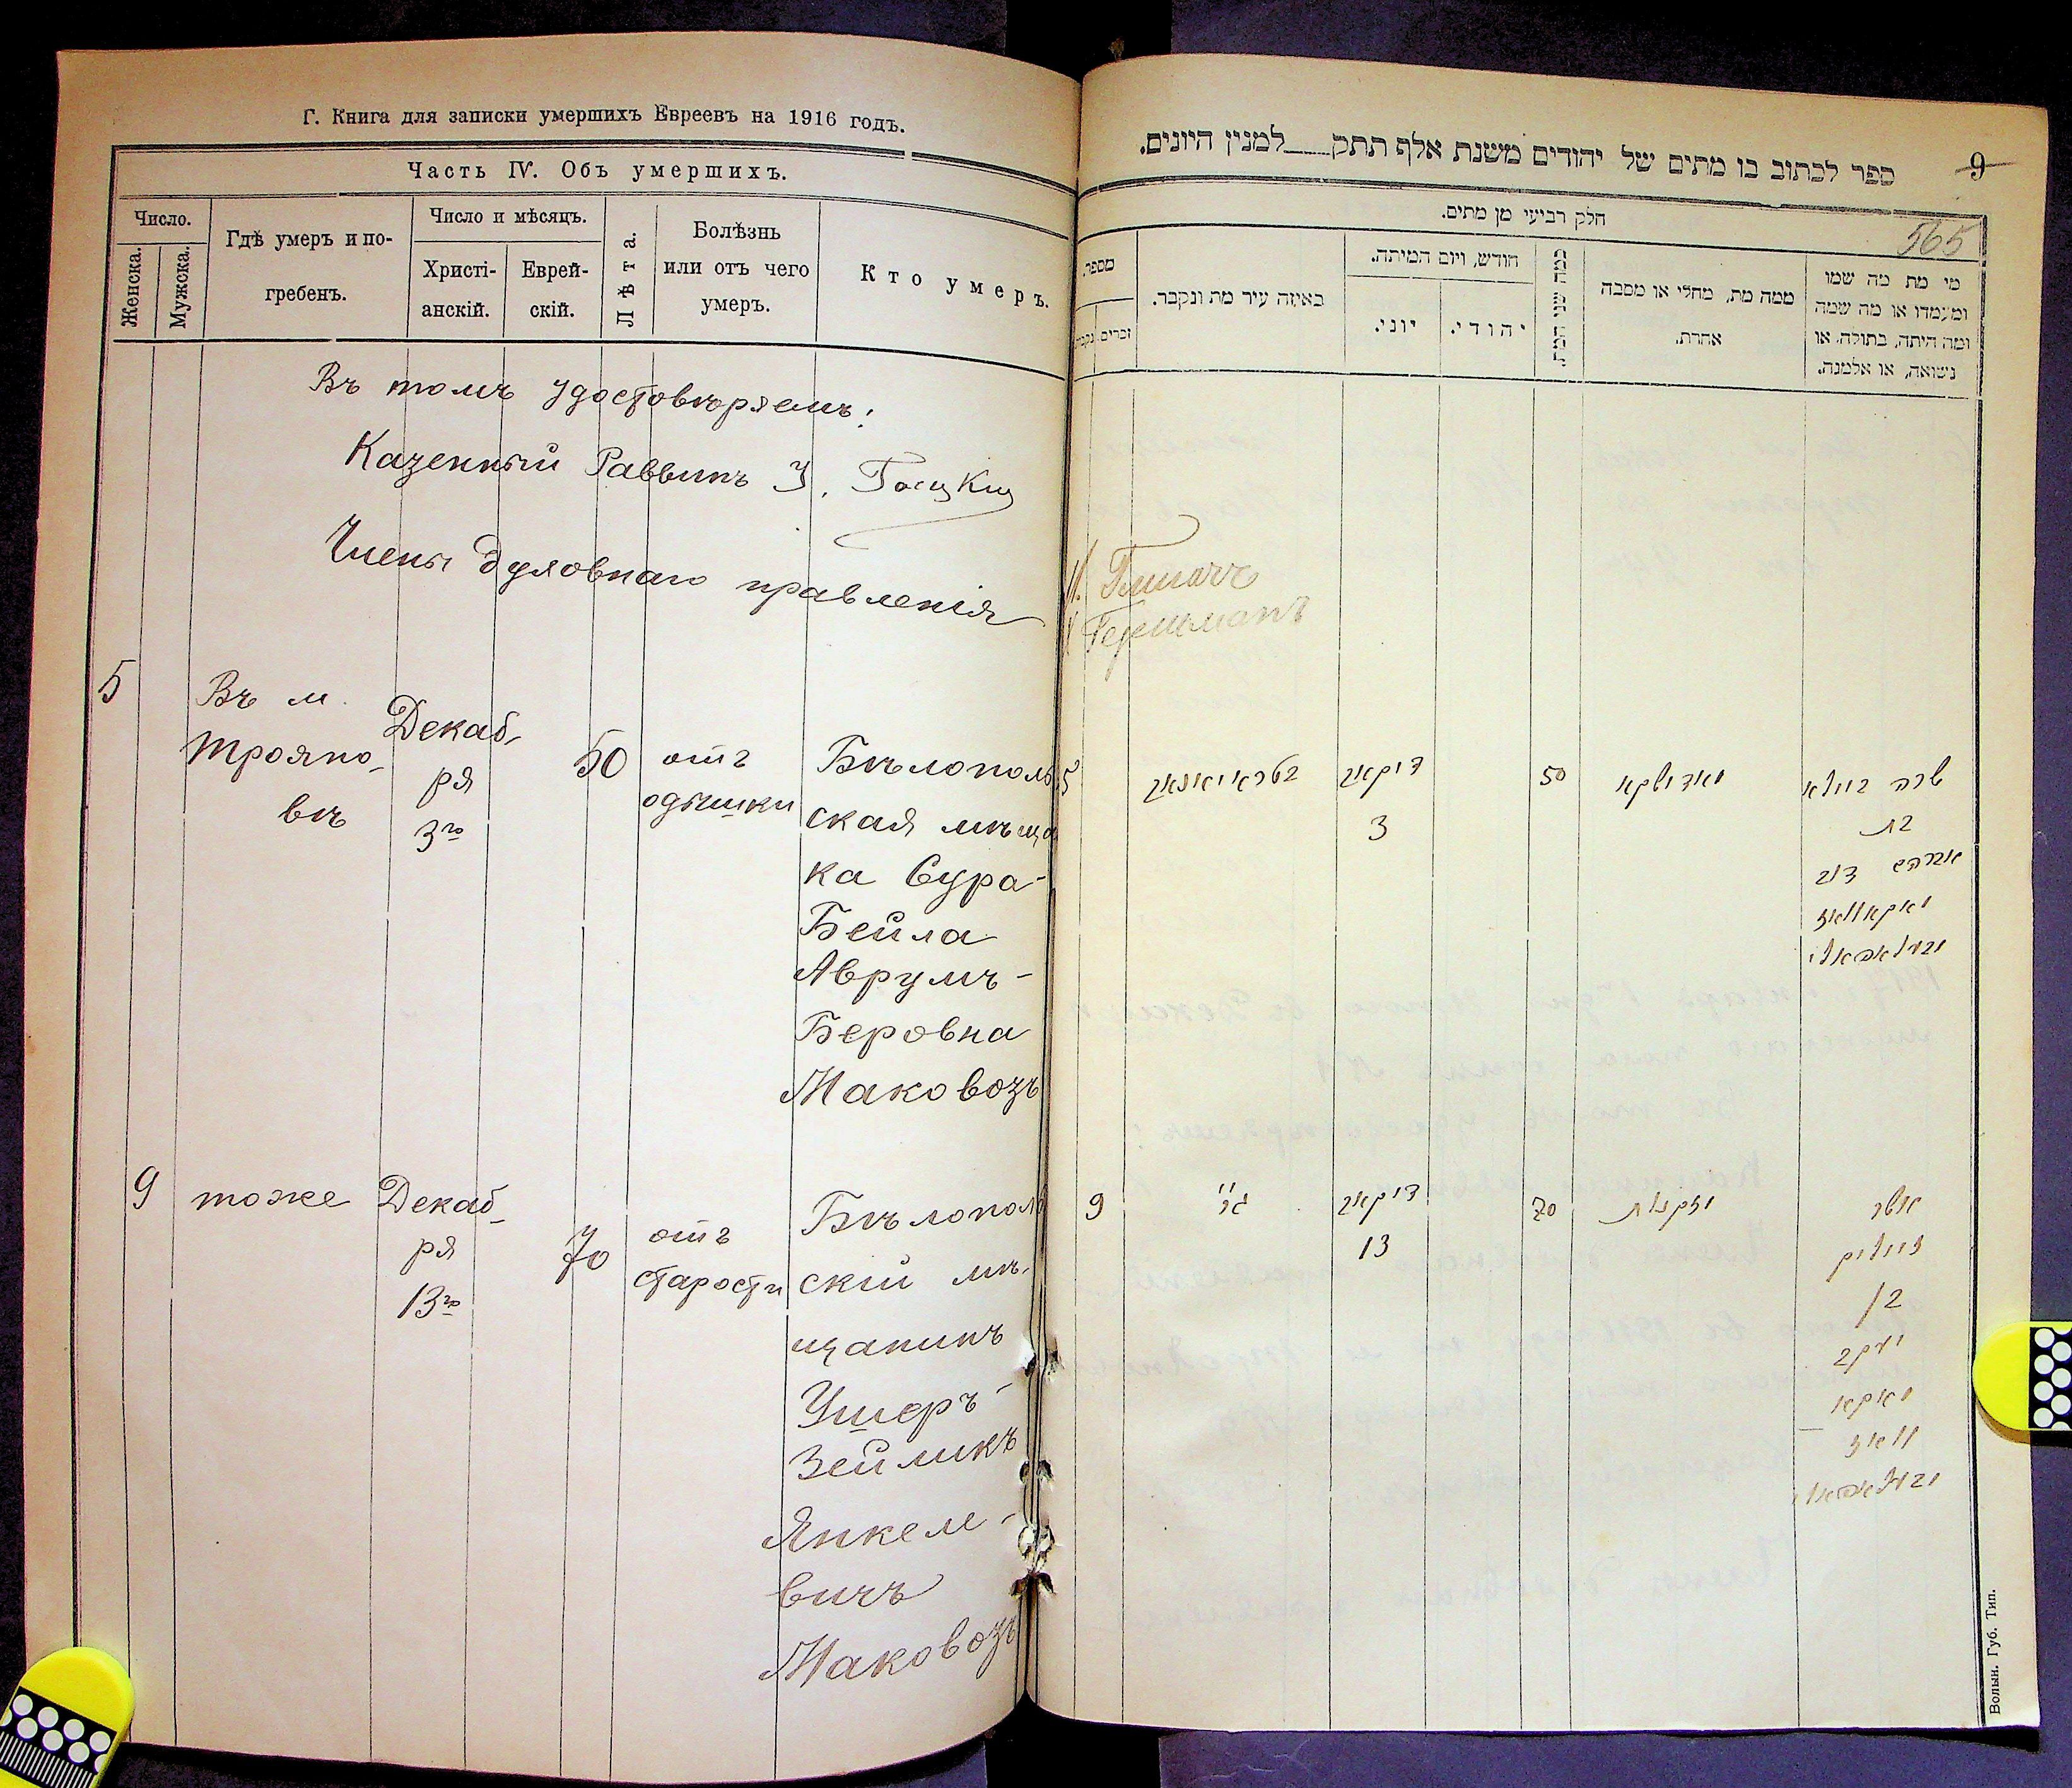 Г. Книга для записки умершихъ Евреевъ на 1916 годъ.
Часть IV. Объ умершихъ.
Число.
Женска.
Мужска.
Гдѣ умеръ и по-
гребенъ.
Число и мѣсяцъ.
Христі-
анскій.
Еврей-
скій.
Лѣта.
Болѣзнь
или отъ чего
умеръ.
Кто умеръ.
Въ томъ удостовѣряемъ:
Казенный Раввинъ
Члены духовнаго правленія
5
Въ м.
Трояно-
вѣ
Декаб-
ря
3го
50
отъ
одышки
Бѣлополь
ская мѣща
ка Сура-
Бейла
Аврумъ-
Беровна
Маковозъ
9
тоже
Декаб-
ря
13го
70
отъ
старости
Бѣлополь
скій мѣ-
щанинъ
Ушеръ-
Зейликъ
Янкеле-
вичъ
Маковозъ
ספר לכתוב בו מתים של יהודים משנת אלף תתק___למנין היונים.
9
565
חלק רביעי מן מתים.
מספר.
זכרים
נקבות
באיזה עיר מת ונקבר.
חודש, ויום המיתה.
יוני.
יהודי.
כמה שני המת.
ממה מת, מחלי או מסבה
אחרת.
מי מת מה שמו
ומעמדו או מה שמה
ומה היתה, בתולה, או
נישואה, או אלמנה.
Гершманъ
5
דיקאב
3
50
שרה ביילא
בת
אברהם דוב
מאקאוואז
9
דיקאב
13
70
מזקנות
אשר
זייליק
ב/
יעקב
מאקא
וואז
Волын. Губ. Тип.